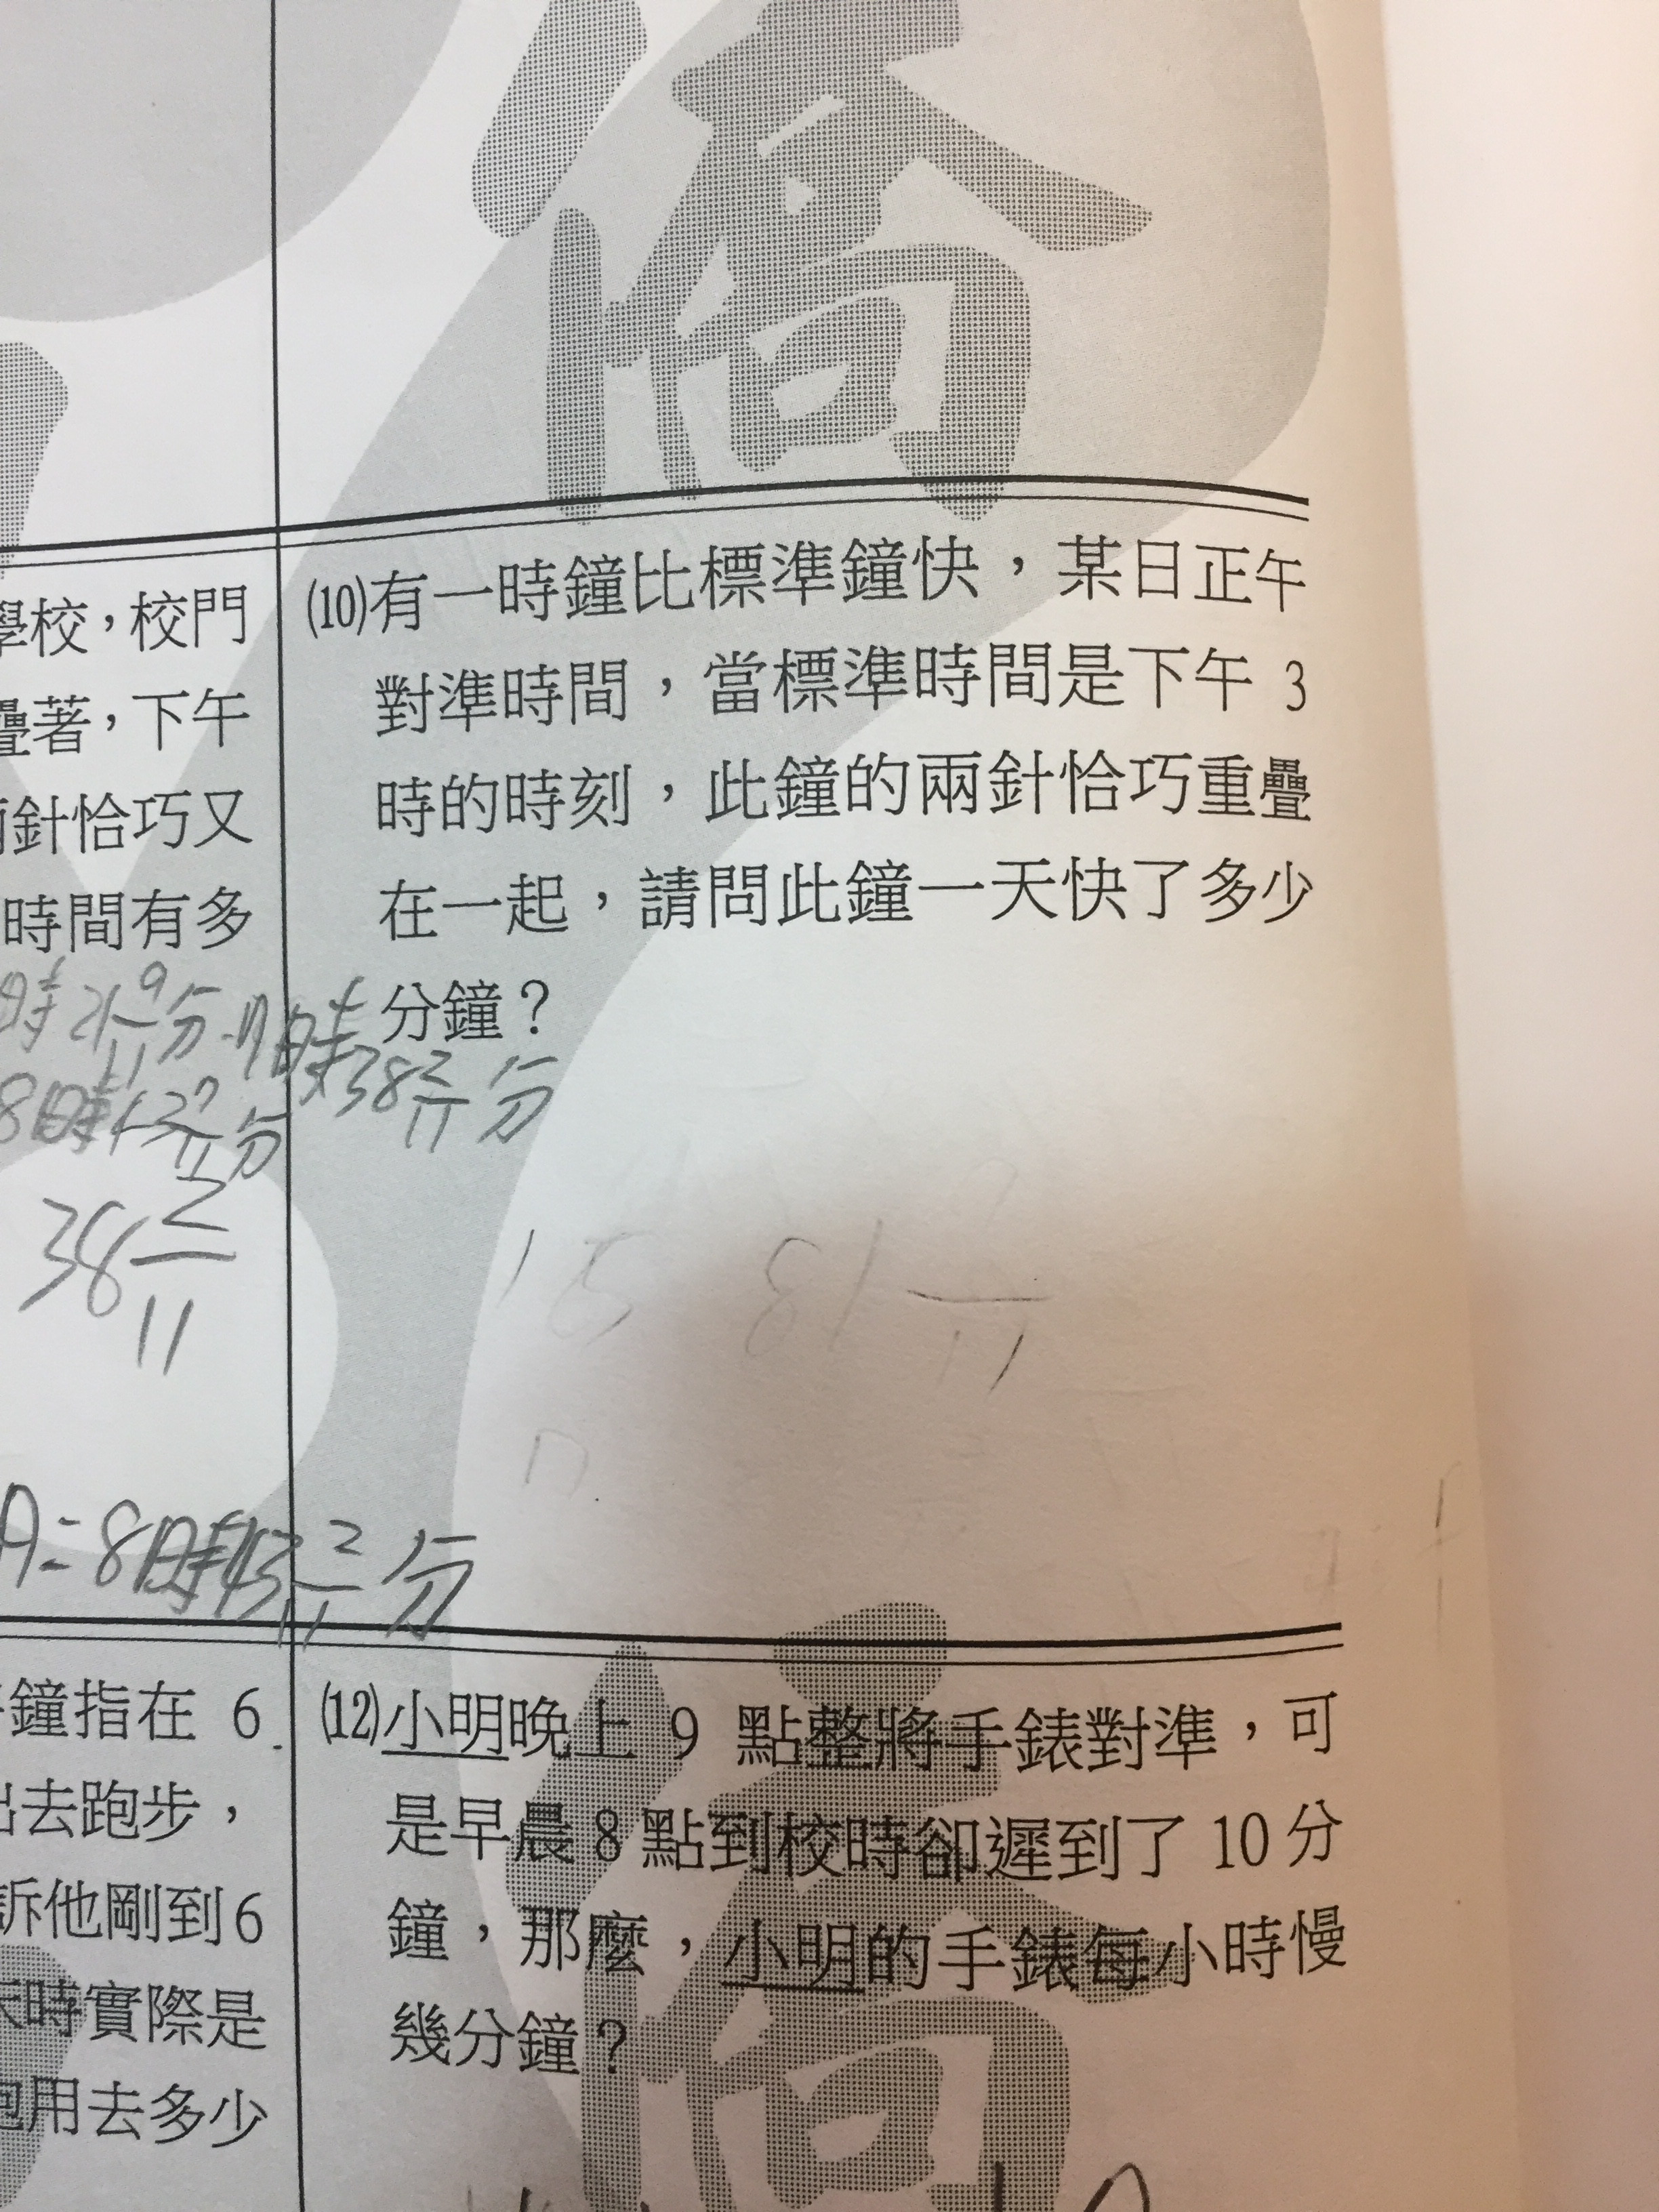 學校，校門
疊著，下午
兩針恰巧又
時間有多
時21 9/11分-11時38 2/11分
8時43 7/11分
38 2/11
A=8時43 7/11分
⑽有一時鐘比標準鐘快，某日正午
對準時間，當標準時間是下午 3
時的時刻，此鐘的兩針恰巧重疊
在一起，請問此鐘一天快了多少
分鐘？
15 81 /11
鐘指在 6
出去跑步，
訴他剛到6
天時實際是
跑用去多少
⑿小明晚上 9 點整將手錶對準，可
是早晨8點到校時卻遲到了10分
鐘，那麼，小明的手錶每小時慢
幾分鐘？